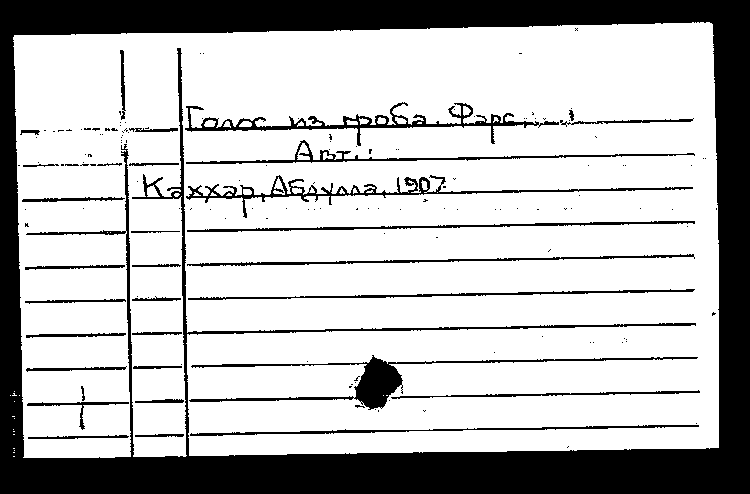 Голос из гроба. Фарс.....
Авт.:
Каххар, Абдулла, 1907.